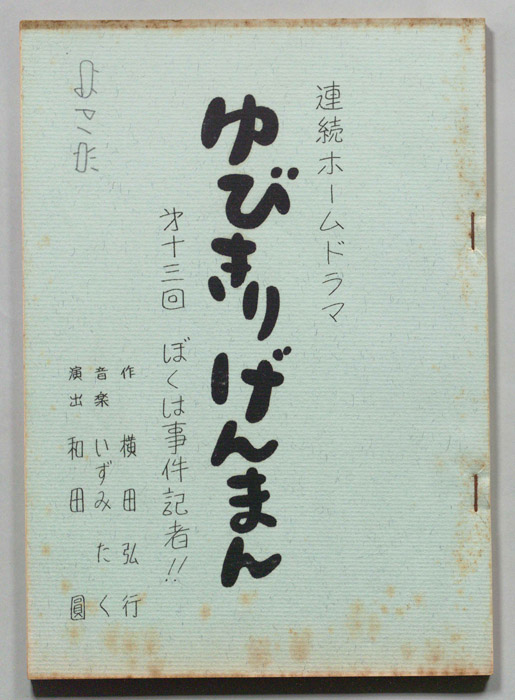 連続ホームドラマ
ゆびきりげんまん
第十三回 ぼくは事件記者!!
作 横田弘行
音楽 いずみたく
演出 和田圓